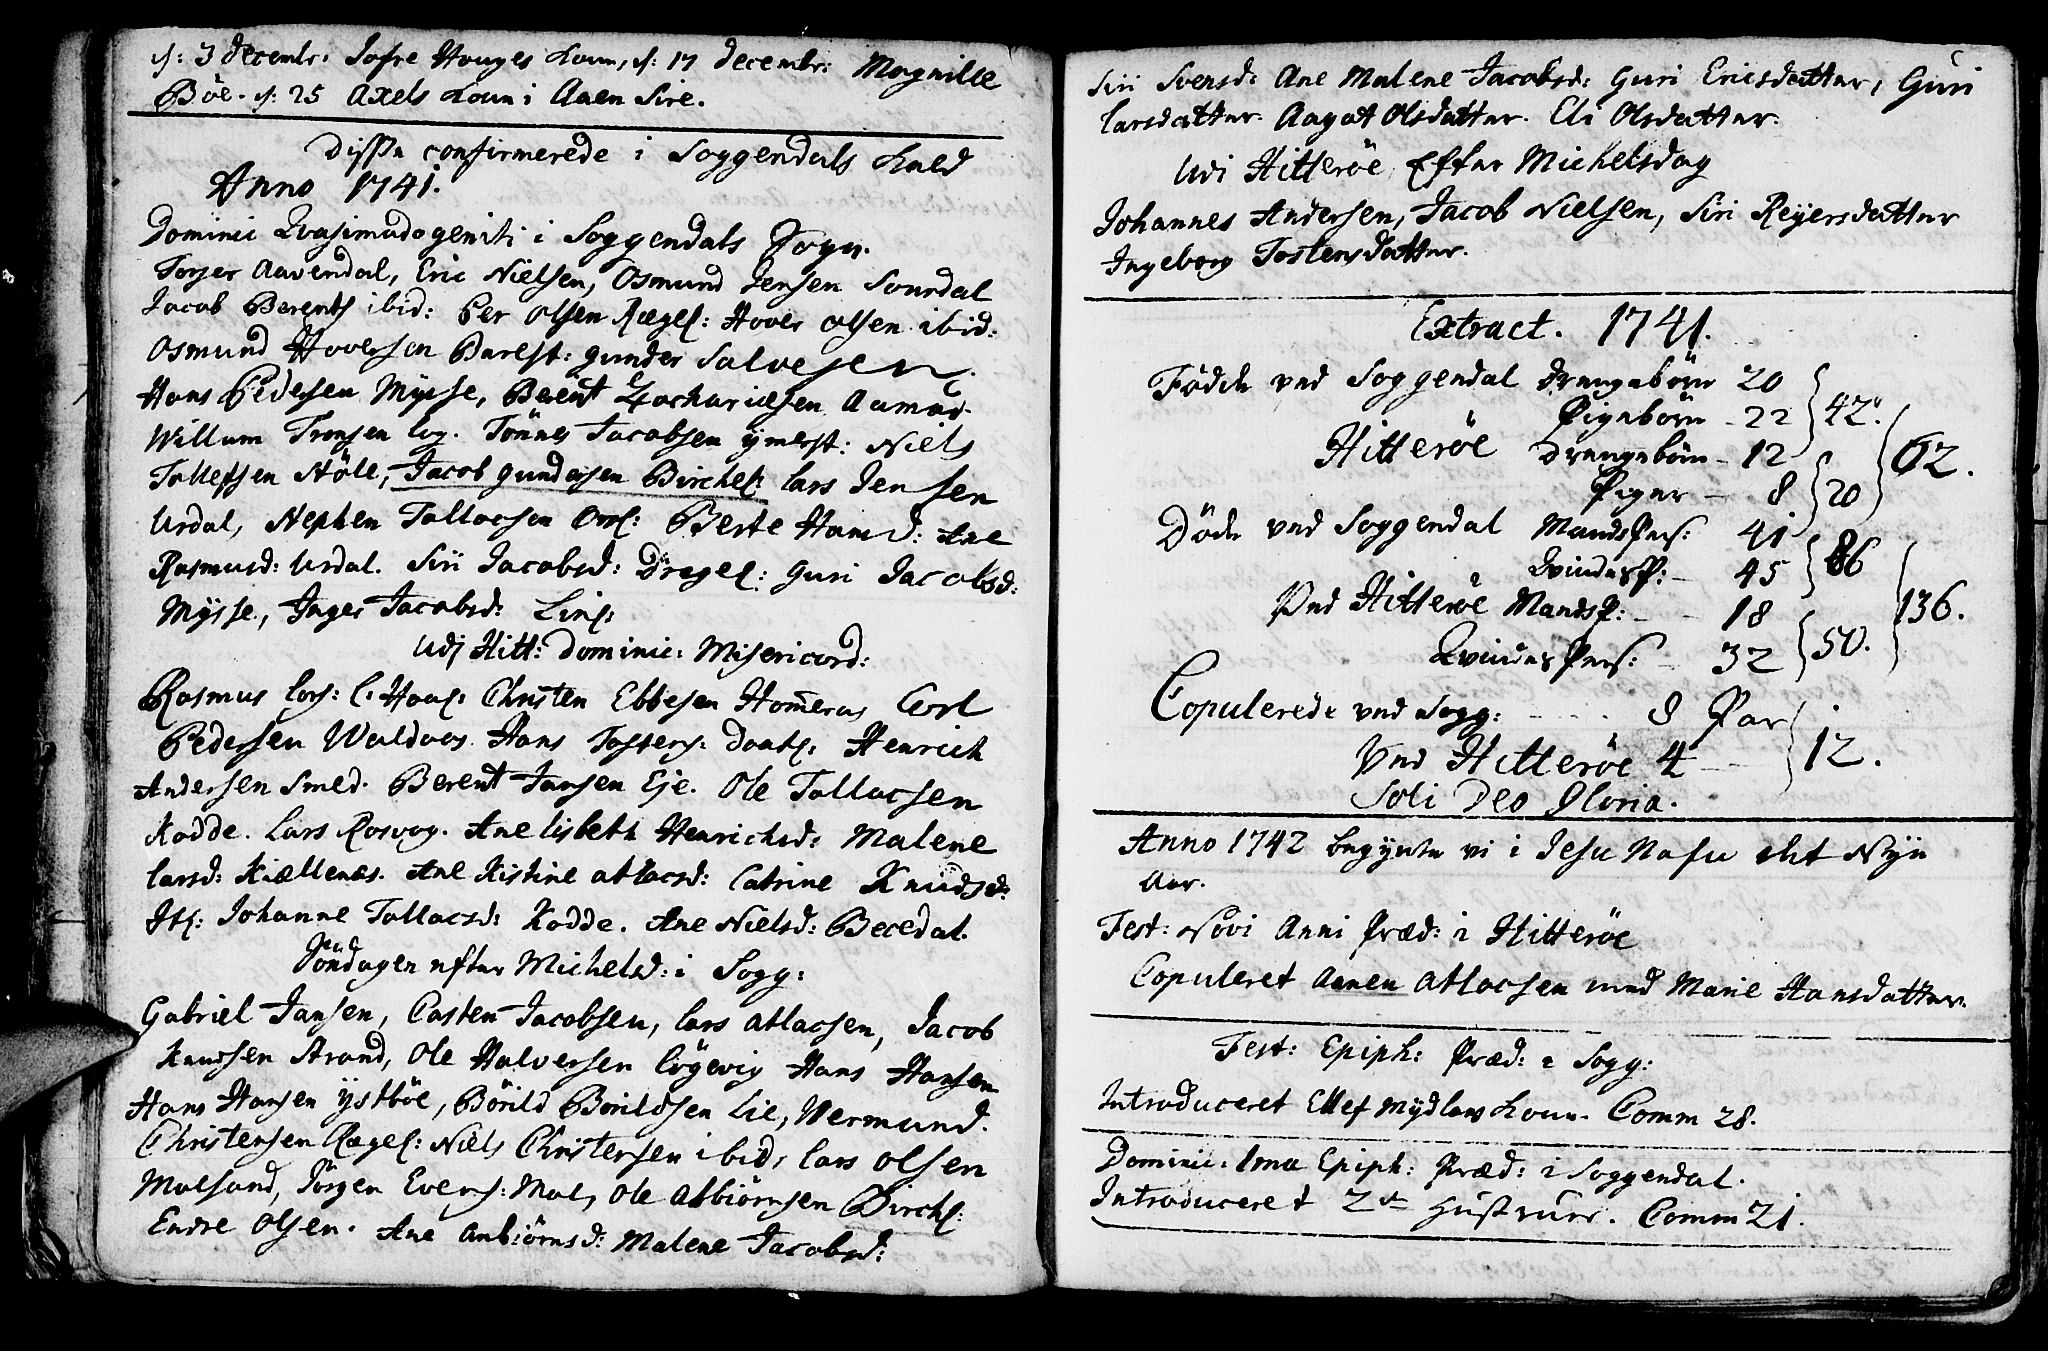 d: 3 decembr: Tofre Houges Koun, d: 17 decembr: Magnille
Böe. d: 25 Axels Koun i Aaen Sire.
Disse confirmerede i Soggendals Kald
Anno 1741.
Dominic Qvasimodogeniti i Soggendals Sogn.
Torger Aavendal, Eric Nielsen, Osmund Jensen Sourdal
Jacob Berents ibid: Per Olsen Rægef: Hover Olsen ibid:
Osmund Hoversen Barest: Gunder Salvesen
Hans Pedersen Mysse, Berent Zachariesen Aamod.
Willum Tronsen log. Tönnes Jacobsen ymerst: Niels
Tollefsen Höle, Jacob Gundersen Birchel: Lars Jensen
Urdal, Nephen Tallacsen Orsl: Berte Hansd: Ane
Rasmusd: Urdal. Siri Jacobsd: Dragel: Guri Jacobsd:
Mysse, Inger Jacobsd: Linl:
Udj Hitt: Dominic: Misericord:
Rasmus Lars: Christen Ebbesen Homeras Carl
Pedersen Waldvos. Hans Tosters: Henrich
Andersen Smed. Berent Jansen Eje. Ole Tallacsen
Kodde. Lars Rosvog. Ane Lisbeth Henrichsd: Malene
Larsd: Kiællenes. Ane Kistine Atlacsd: Catrine Knudsd:
Johanne Tallacsd: Kodde. Ane Nielsd: Becedal.
Söndagen efter Michelsd: i Sogg:
Gabriel Jansen, Casten Jacobsen, Lars Atlacsen, Jacob
Knudsen Strand, Ole Halversen Lögevig Hans Hansen
Hans Hansen ystböe, Börild Börildsen Lie, Vermund
Christensen Rægef: Niels Christensen ibid, Lars Olsen
Malsand, Jörgen Evers: Mal, Ole Asbiörnsen Birchl:
Endre Olsen. Ane Anbiörnsd: Malene Jacobsd:
Siri Svensd: Ane Malene Jacobsd: Guri Ericsdatter, Guri
Larsdatter. Aagot Olsdatter. Eli Olsdatter.
Udi Hitteröe Efter Michelsdag
Johannes Andersen, Jacob Nielsen, Siri Reyersdatter
Ingeborg Tostensdatter.
Extract. 1741.
Födde ved Soggendal Drengebörn 20
Pigebörn - 22 42.
Hitteröe Drengebörn - 12 62.
Piger - 8 20
Döde ved Soggendal MandsPers: 41
QvindesP: - 45 86
Ved Hitteröe MandsP: - - 18 136.
QvindesPers: - 32 50.
Copulerede ved Sogg: - - - - 8 Par
Ved Hitteröe 4 - - 12.
Soli Deo Gloria.
Anno 1742 begynte vi i Jesu Nafn det Nye
Aar.
Fest: Novi Anni Præd: i Hitteröe
Copuleret Aanen Atlacsen med Marie Hansdatter.
Fest: Epiph: Præd: i Sogg:
Introduceret Ellef Mydlavs Koun. Comm 28.
Dominic: 1ma Epiph: Præd: i Soggendal.
Introduceret 2de Hustruer. Comm 21.